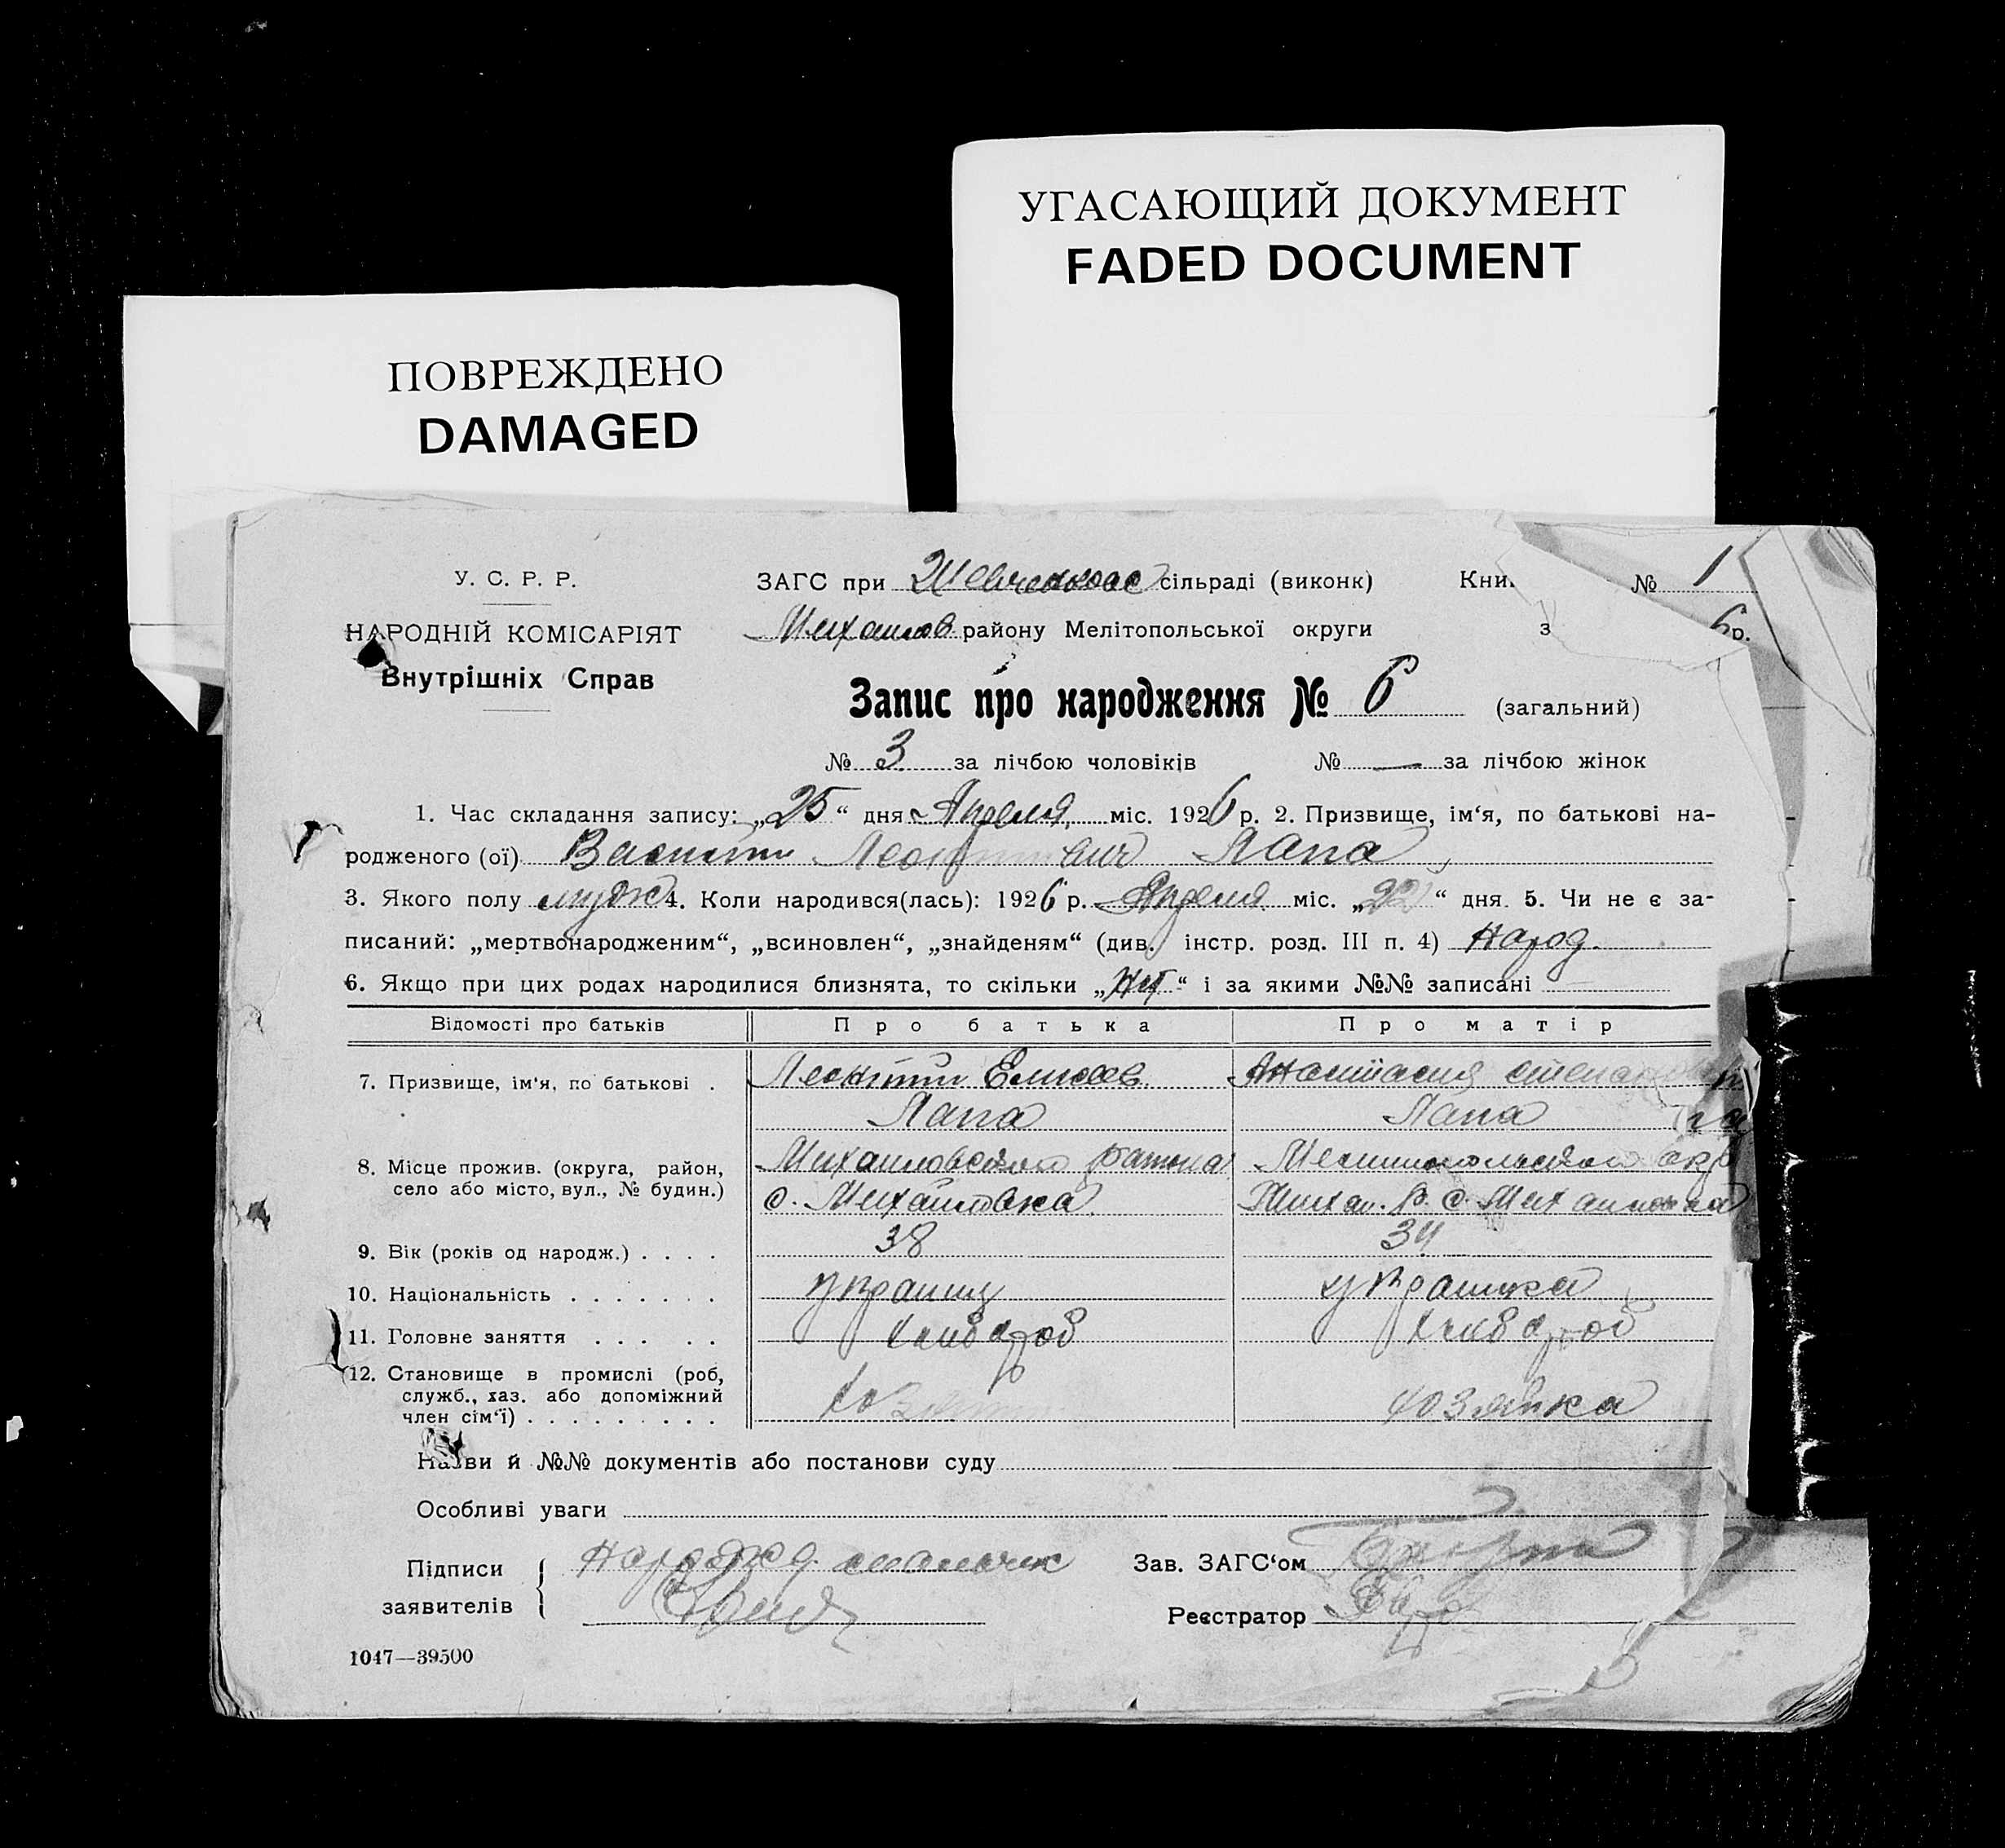 УГАСАЮЩИЙ ДОКУМЕНТ
FADED DOCUMENT
ПОВРЕЖДЕНО
DAMAGED
У. С. Р. Р.
НАРОДНІЙ КОМІСАРІЯТ
Внутрішніх Справ
ЗАГС при Шевченковс сільраді (виконк)
Михайлов району Мелітопольської округи
№ 1
з 6р.
Запис про народження № 6 (загальний)
№ 3 за лічбою чоловіків № — за лічбою жінок
1. Час складання запису: „25“ дня Апреля міс. 1926 р. 2. Призвище, ім‘я, по батькові на-
родженого (ої) Леонтиевич Лапа
3. Якого полу муж 4. Коли народився(лась): 1926 р. Апреля міс. „22“ дня. 5. Чи не є за-
писаний: „мертвонародженим“, „всиновлен“, „знайденям“ (див. інстр. розд. III п. 4) Народ.
6. Якщо при цих родах народилися близнята, то скільки „ “ і за якими №№ записані
Відомості про батьків Про батька Про матір
7. Призвище, ім‘я, по батькові . Леонтий Елисеев Анастасия
Лапа Лапа
8. Місце прожив. (округа, район, Михайловский района Мелитопольской окр
село або місто, вул., № будин.) с. Михайловка Михай. р. с. Михайловка
9. Вік (років од народж.) . . . . 38 34
10. Національність . . . . . . . украинц украинка
11. Головне заняття . . . . . хлібороб хлібороб
12. Становище в промислі (роб,
служб., хаз. або допоміжний
член сім‘ї) . . . . . . . . . хозяйка
Назви й №№ документів або постанови суду
Особливі уваги
Підписи мальчик Зав. ЗАГС‘ом
заявителів Реєстратор
1047—39500